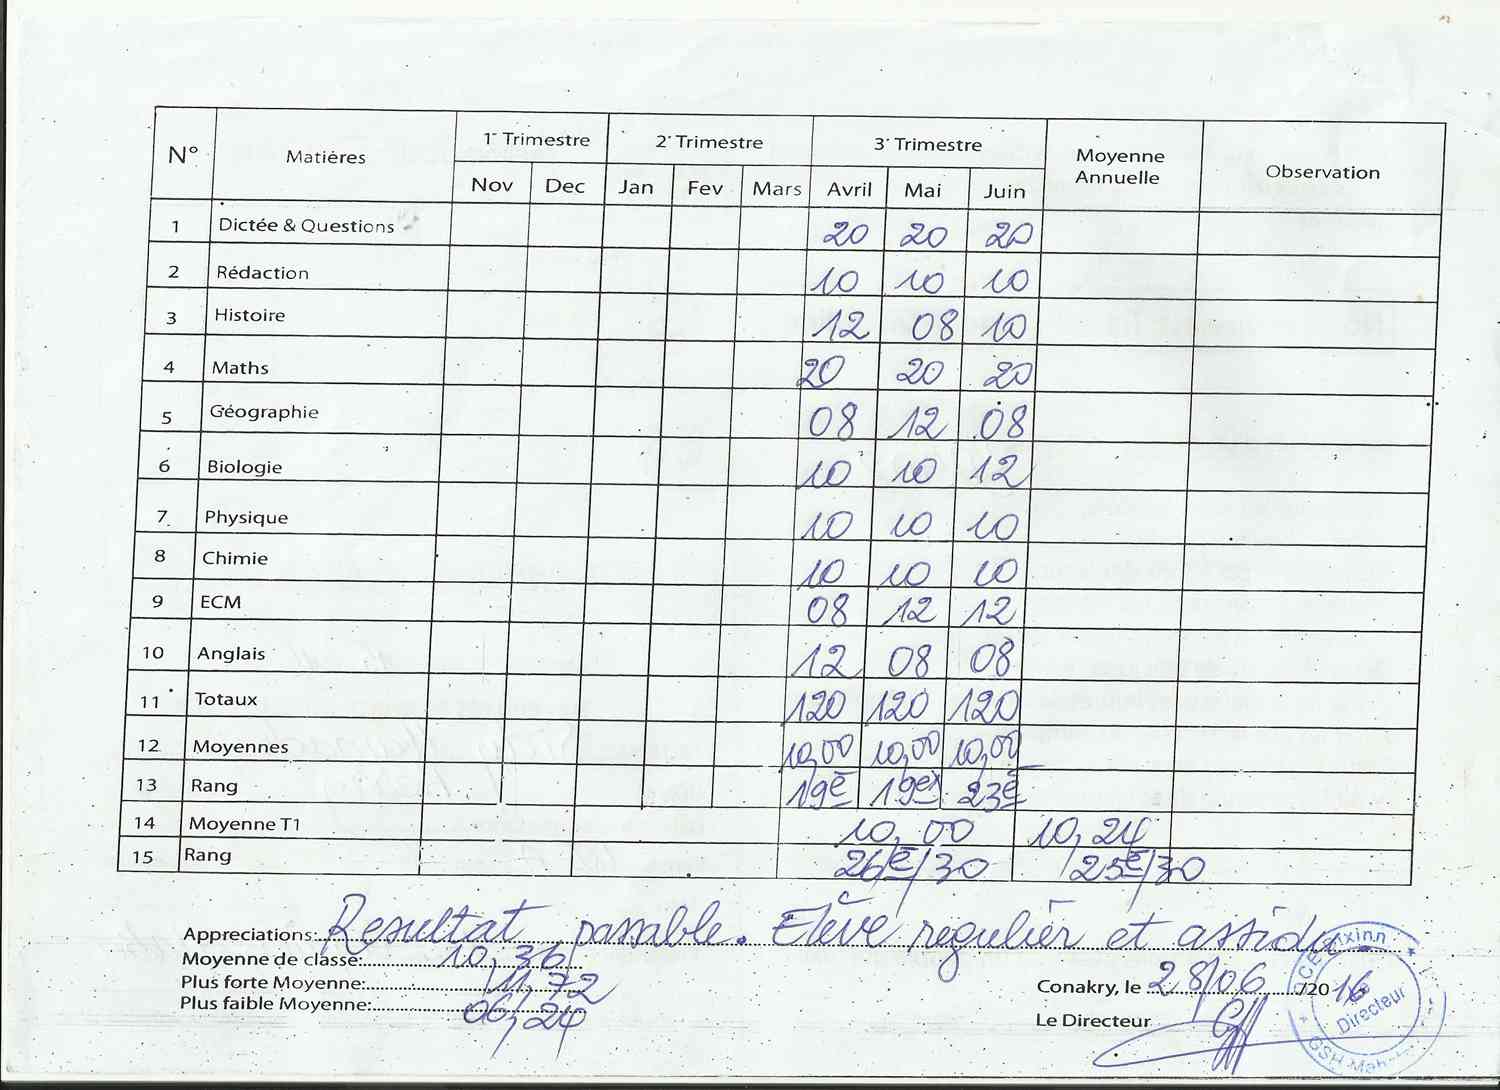 N° Matiéres 1er Trimestre 2e Trimestre 3e Trimestre Moyenne Annuelle Observation
Nov Dec Jan Fev Mars Avril Mai Juin
1 Dictée & Questions 20 20 20
2 Rédaction 10 10 10
3 Histoire 12 08 10
4 Maths 20 20 20
5 Géographie 08 12 08
6 Biologie 10 10 12
7 Physique 10 10 10
8 Chimie 10 10 10
9 ECM 08 12 12
10 Anglais 12 08 08
11 Totaux 120 120 120
12 Moyennes 10,00 10,00 10,00
13 Rang 19e 19ex 23e
14 Moyenne T1 10,00 10,24
15 Rang 26e/30 23e/30
Appreciations: Resultat passable. Elève regulièr et assidu
Moyenne de classe: 10,36
Plus forte Moyenne: 11,72
Plus faible Moyenne: 06,24
Conakry, le 28/06/2016
Le Directeur
Directeur